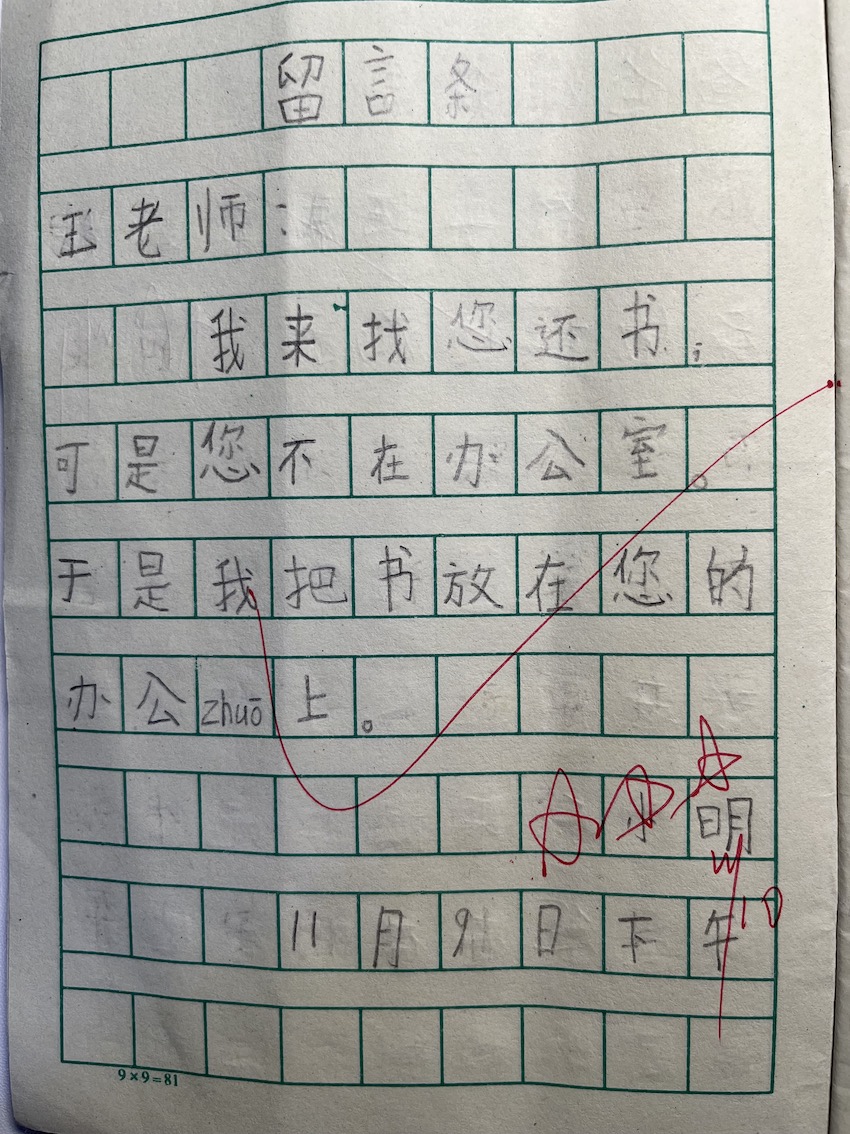 留言条
王老师：
我来找您还书；
可是您不在办公室。
于是我把书放在您的
办公zhuō上。
小明
11月9日下午
11/10
9×9=81